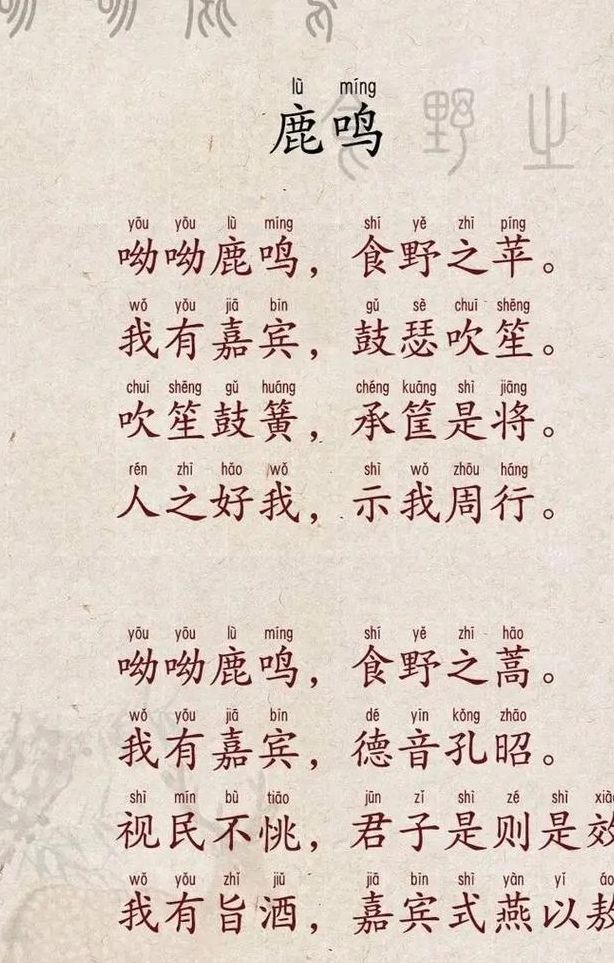 lù míng
鹿鸣
yōu yōu lù míng shí yě zhī píng
呦呦鹿鸣，食野之苹。
wǒ yǒu jiā bīn gǔ sè chuī shēng
我有嘉宾，鼓瑟吹笙。
chuī shēng gǔ huáng chéng kuāng shì jiāng
吹笙鼓簧，承筐是将。
rén zhī hǎo wǒ shì wǒ zhōu háng
人之好我，示我周行。
yōu yōu lù míng shí yě zhī hāo
呦呦鹿鸣，食野之蒿。
wǒ yǒu jiā bīn dé yīn kǒng zhāo
我有嘉宾，德音孔昭。
shì mín bù tiāo jūn zǐ shì zé shì
视民不恌，君子是则是效
wǒ yǒu zhǐ jiǔ jiā bīn shì yàn yǐ áo
我有旨酒，嘉宾式燕以敖